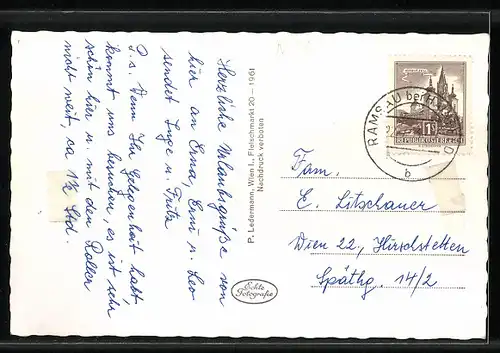 Herzliche Urlaubsgrüße von
hier an Erna, Erni u. Leo
sendet Inge u. Fritz
P.s. Wenn Ihr Gelegenheit habt,
kommt uns besuchen, es ist sehr
schön hier u. mit dem Roller
nicht weit, ca 1½ Std.
P. Ledermann, Wien I., Fleischmarkt 20 – 1961
Nachdruck verboten
Echte
Fotografie
REPUBLIK ÖSTERREICH
RAMSAU bei
b
Fam.
E. Litschauer
Wien 22, Hirschstetten
Späthg. 14/2